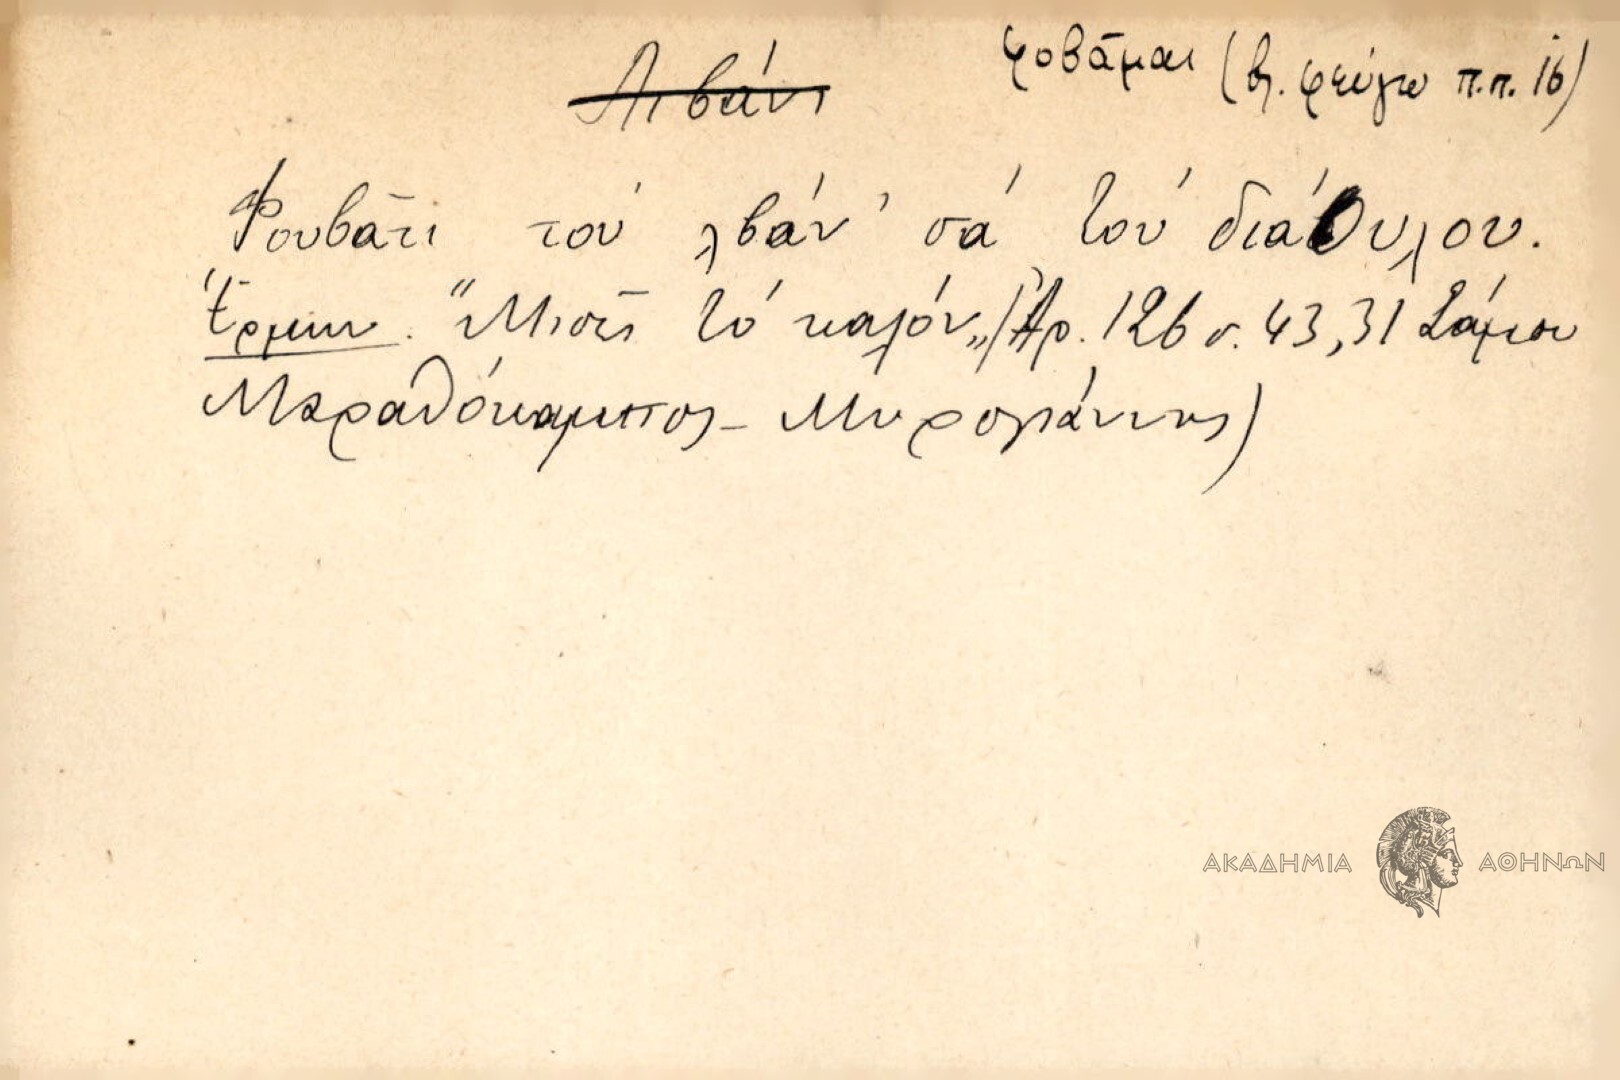 Λιβάνι
φοβᾶμαι (βλ. φεύγω π.π. 16)
Φουβᾶτι τοὺ λβάν' σὰ τοὺ διάουλου.
Ἑρμην. "Μισεῖ τὸ καλόν„ (Ἀρ. 126 σ. 43,31 Σάμου
Μαραθόκαμπος - Μυρογιάννης)
ΑΚΑΔΗΜΙΑ ΑΘΗΝΩΝ